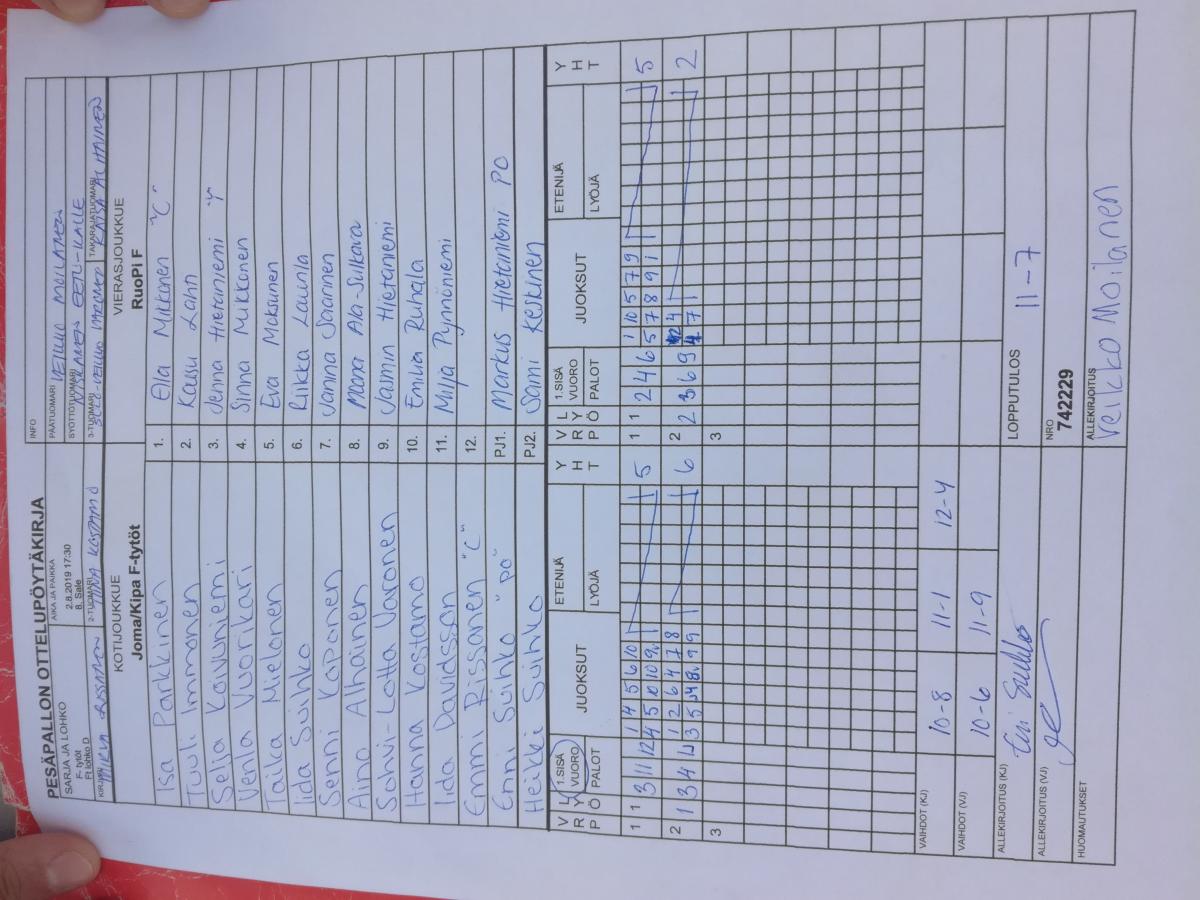 PESÄPALLON OTTELUPÖYTÄKIRJA
INFO
SARJA JA LOHKO
F- tytöt
Ft lohko D
AIKA JA PAIKKA
2.8.2019 17:30
8. Sale
PÄÄTUOMARI
VEIKKO MOILANEN
SYÖTTÖTUOMARI
EETU-KALLE
KIRJURI
2-TUOMARI
TIINA KOSTAMO
3-TUOMARI
TAKARAJATUOMARI
KAISA ALHAINEN
KOTIJOUKKUE
Joma/Kipa F-tytöt
VIERASJOUKKUE
RuoPi F
Isa Parkkinen 1. Ella Mikkonen "C"
Tuuli Immonen 2. Kaisu Lahn
Selja Kovuniemi 3. Jenna Hietaniemi
Venla Vuorikari 4. Sinna Mikkonen
Taika Mielonen 5. Eva Moksunen
Iida Suihko 6. Riikka Launla
Senni Kaponen 7. Janina Saannen
Aino Alhainen 8. Moona Ala-Sulkava
Sohvi-Lotta Varonen 9. Jasmin Hietaniemi
Hanna Kostamo 10. Emilia Ruhala
Iida Davidsson 11. Milja Pynnöniemi
Emmi Rissanen "C" 12.
Enni Suihko "PO" PJ1. Markus Hietaniemi PO
Heikki Suihko PJ2. Sami Keskinen
V R P L Y Ö 1.SISÄ VUORO PALOT JUOKSUT ETENIJÄ LYÖJÄ Y H T V R P L Y Ö 1.SISÄ VUORO PALOT JUOKSUT ETENIJÄ LYÖJÄ Y H T
1 1 3 11 12 1 4 5 6 10 5 1 1 2 4 6 1 10 5 7 9 5
4 5 10 10 9 5 7 8 9 1
2 1 3 4 1 2 6 4 7 8 6 2 2 3 6 9 4 2
3 5 9 9 7 1
3 3
VAIHDOT (KJ) 10-8 11-1 12-4
VAIHDOT (VJ) 10-6 11-9
ALLEKIRJOITUS (KJ)
LOPPUTULOS 11-7
ALLEKIRJOITUS (VJ)
NRO
742229
HUOMAUTUKSET
ALLEKIRJOITUS
Veikko Moilanen